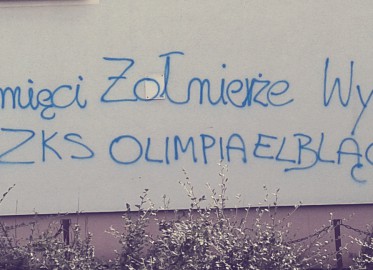 mięci Żołnierze Wy
ZKS OLIMPIA ELBLĄG